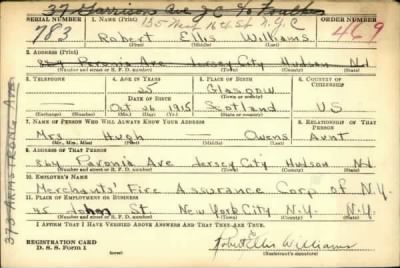 37 Garrison Ave J C
135 164 St N.Y.C
SERIAL NUMBER 1. NAME (Print) ORDER NUMBER
783 Robert Ellis Williams 469
(First) (Middle) (Last)
2. ADDRESS (Print)
864 Pavonia Ave Jersey City Hudson NJ
(Number and street or R. F. D. number) (Town) (County) (State)
3. TELEPHONE 4. AGE IN YEARS 5. PLACE OF BIRTH 6. COUNTRY OF CITIZENSHIP
25 Glasgow
DATE OF BIRTH (Town or county)
Oct 26 1915 Scotland US
(Mo.) (Day) (Yr.) (State or country)
7. NAME OF PERSON WHO WILL ALWAYS KNOW YOUR ADDRESS 8. RELATIONSHIP OF THAT PERSON
Mrs Hugh — Owens Aunt
(Mr., Mrs., Miss) (First) (Middle) (Last)
9. ADDRESS OF THAT PERSON
864 Pavonia Ave Jersey City Hudson NJ
(Number and street or R. F. D. number) (Town) (County) (State)
10. EMPLOYER'S NAME
Merchants' Fire Assurance Corp of N.Y.
11. PLACE OF EMPLOYMENT OR BUSINESS
45 John St New York City N.Y. N.Y.
(Number and street or R. F. D. number) (Town) (County) (State)
I AFFIRM THAT I HAVE VERIFIED ABOVE ANSWERS AND THAT THEY ARE TRUE.
REGISTRATION CARD
D. S. S. Form 1
Robert Ellis Williams
(Registrant's signature)
373 ARMSTRONG AVE